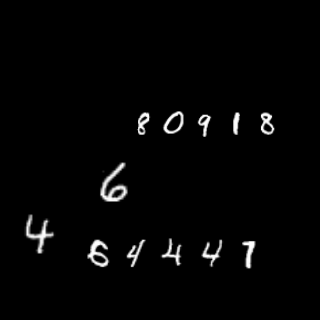 80918
6
4
64447